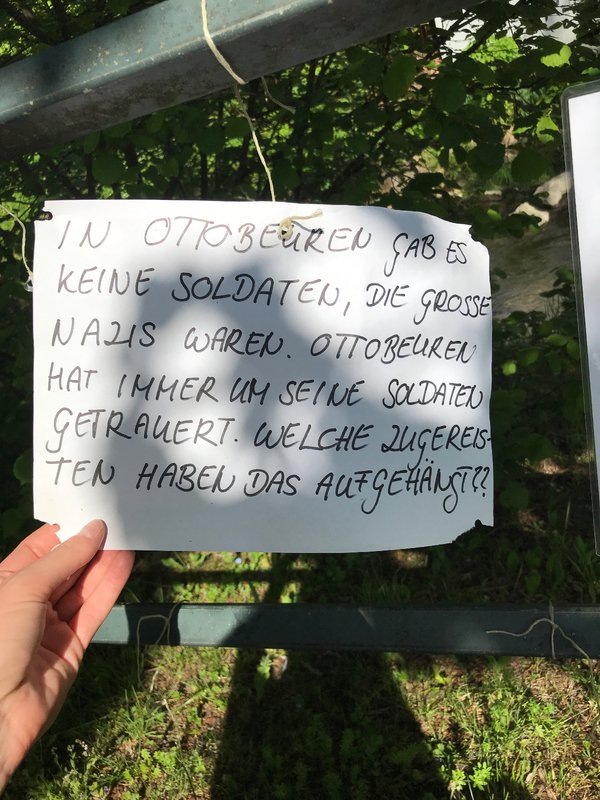 IN OTTOBEUREN GAB ES
KEINE SOLDATEN, DIE GROSSE
NAZIS WAREN. OTTOBEUREN
HAT IMMER UM SEINE SOLDATEN
GETRAUERT. WELCHE ZUGEREIS-
TEN HABEN DAS AUFGEHÄNGT??